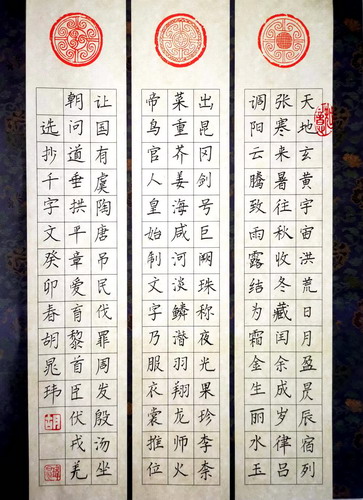 天地玄黄宇宙洪荒日月盈昃辰宿列
张寒来暑往秋收冬藏闰余成岁律吕
调阳云腾致雨露结为霜金生丽水玉
出昆冈剑号巨阙珠称夜光果珍李柰
菜重芥姜海咸河淡鳞潜羽翔龙师火
帝鸟官人皇始制文字乃服衣裳推位
让国有虞陶唐吊民伐罪周发殷汤坐
朝问道垂拱平章爱育黎首臣伏戎羌
选抄千字文癸卯春胡晁玮